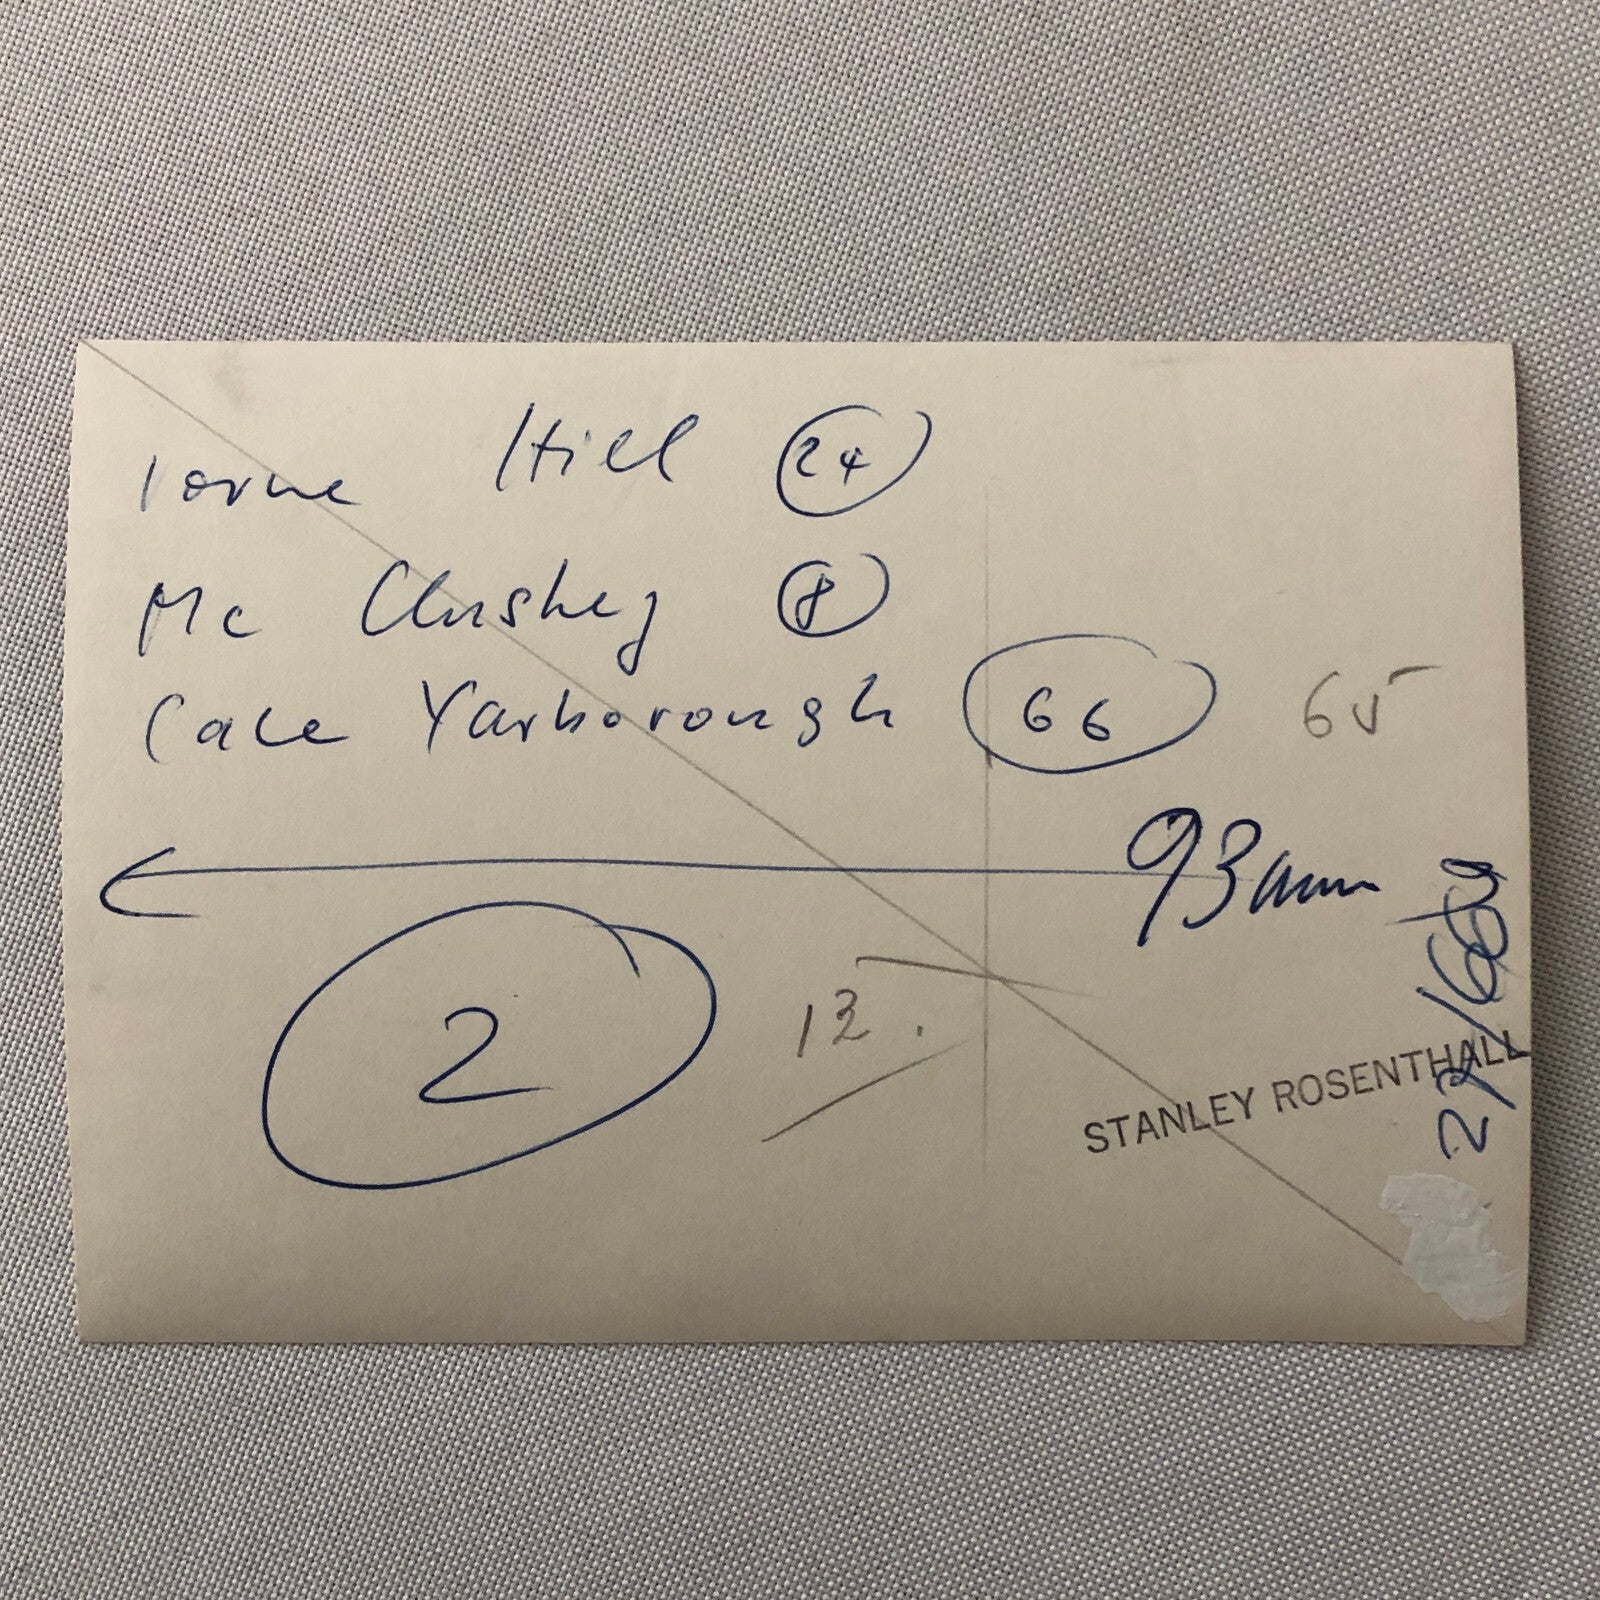 Hill 24
Mc Cluskey 8
Cale Yarborough 66 65
93mm
2 12.
STANLEY ROSENTHALL